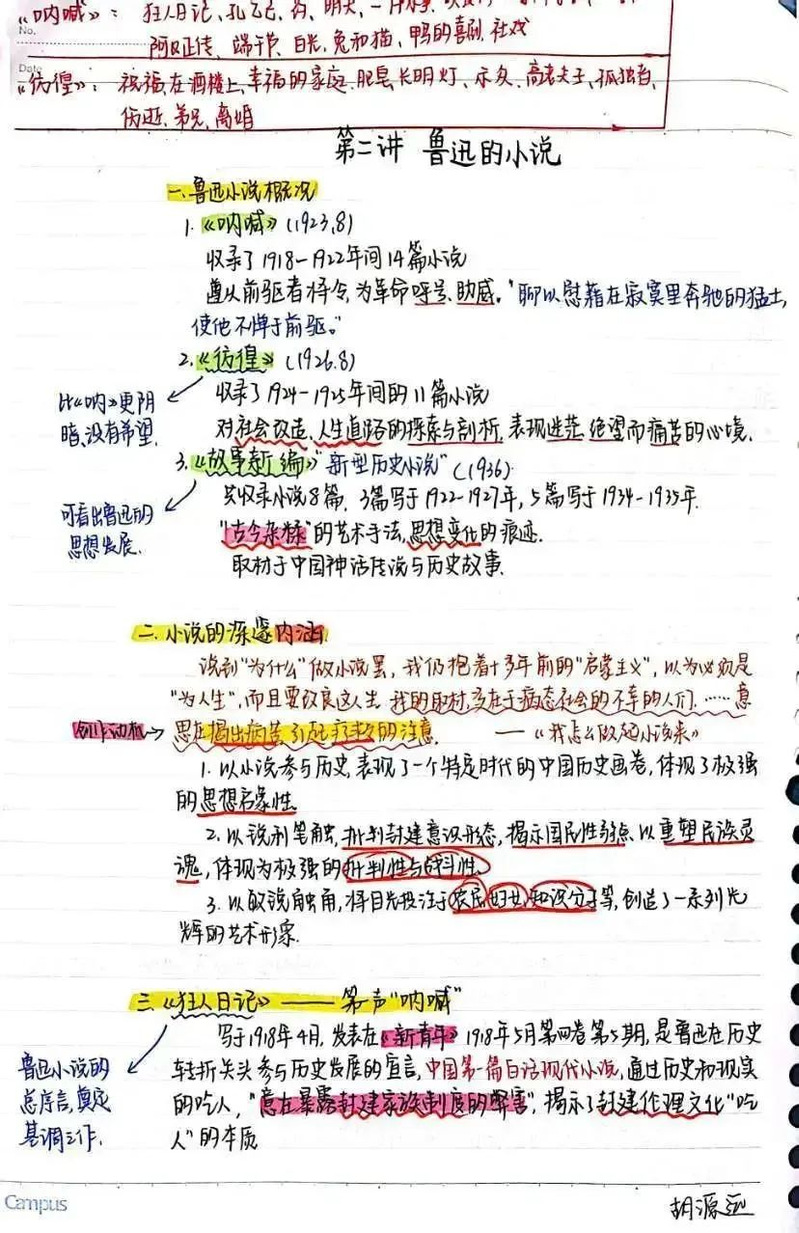 《呐喊》: 狂人日记、孔乙己、药、明天、一件小事、
No.
阿Q正传、端午节、白光、兔和猫、鸭的喜剧、社戏
Date
《彷徨》: 祝福、在酒楼上、幸福的家庭、肥皂、长明灯、示众、高老夫子、孤独者、
伤逝、弟兄、离婚
第二讲 鲁迅的小说
一.鲁迅小说概况
1.《呐喊》(1923.8)
收录了1918-1922年间14篇小说
遵从前驱者将令,为革命呼号、助威。"聊以慰藉在寂寞里奔驰的猛士,
使他不惮于前驱。"
2.《彷徨》(1926.8)
收录了1924-1925年间的11篇小说
比《呐》更阴
暗,没有希望.
对社会改造、人生道路的探索与剖析,表现迷茫、绝望而痛苦的心境.
3.《故事新编》"新型历史小说"(1936).
共收录小说8篇. 3篇写于1922-1927年,5篇写于1934-1935年.
可看出鲁迅的
思想发展.
"古今杂糅"的艺术手法,思想变化的痕迹.
取材于中国神话传说与历史故事.
二.小说的深邃内涵
说到"为什么"做小说罢,我仍抱着十多年前的"启蒙主义",以为必须是
"为人生",而且要改良这人生.我的取材,多在于病态社会的不幸的人们……意
创作动机→思在揭出病苦,引起疗救的注意. ——《我怎么做起小说来》
1.以小说参与历史,表现了一个特定时代的中国历史画卷,体现了极强
的思想启蒙性.
2.以锐利笔触,批判封建意识形态,揭示国民性弱点.以重塑民族灵
魂,体现为极强的批判性与战斗性.
3.以敏锐触角,将目光投注于农民、妇女、知识分子等,创造了一系列光
辉的艺术形象.
三.《狂人日记》——第一声"呐喊"
写于1918年4月,发表在《新青年》1918年5月第四卷第5期,是鲁迅在历史
鲁迅小说的
总序言,奠定
基调之作.
转折关头参与历史发展的宣言,中国第一篇白话现代小说,通过历史和现实
的吃人,"意在暴露封建家族制度的弊害",揭示了封建伦理文化"吃
人"的本质
Campus
胡源远